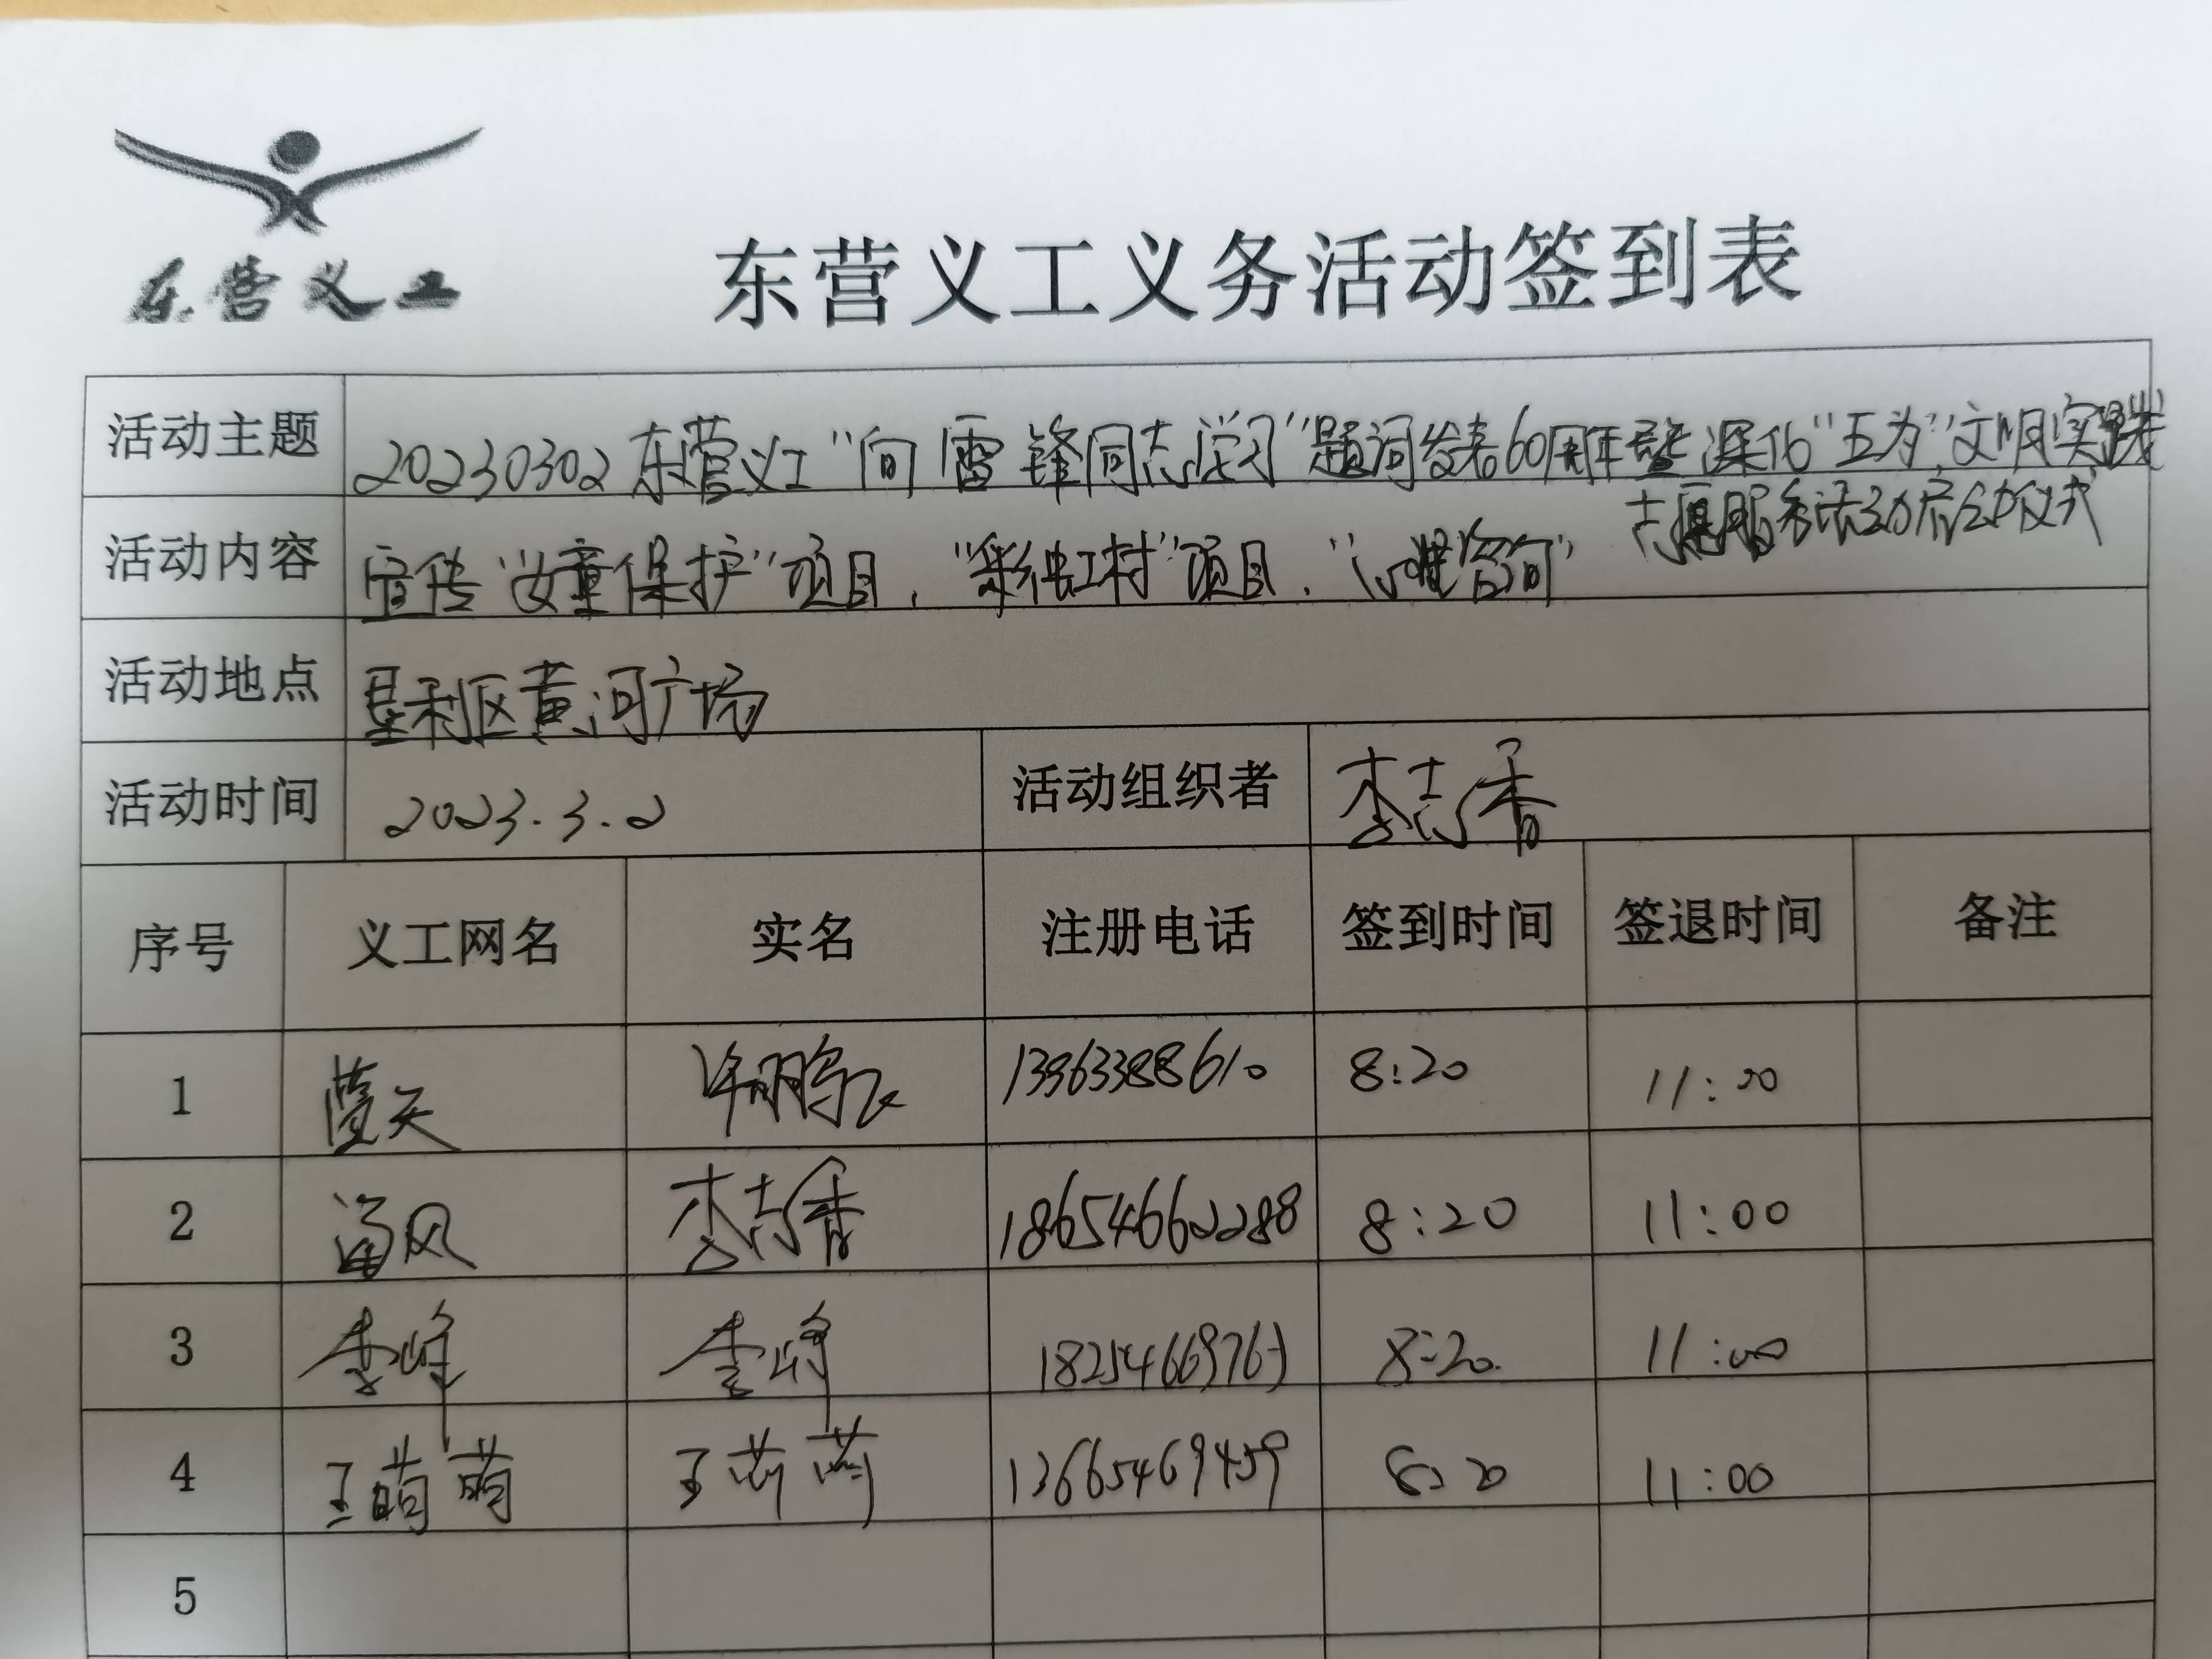 东营义工
东营义工义务活动签到表
活动主题 20230302东营义工“向雷锋同志学习”题词发表60周年暨深化“五为”文明实践
志愿服务活动启动仪式
活动内容 宣传“女童保护”项目,“彩虹村”项目,“心理咨询”
活动地点 垦利区黄河广场
活动时间 2023.3.2 活动组织者 李志香
序号 义工网名 实名 注册电话 签到时间 签退时间 备注
1 蓝天 13963388610 8:20 11:00
2 海风 李志香 18654662288 8:20 11:00
3 李峰 李峰 18254669763 8:20 11:00
4 王萌萌 王萌萌 13665469459 8:20 11:00
5